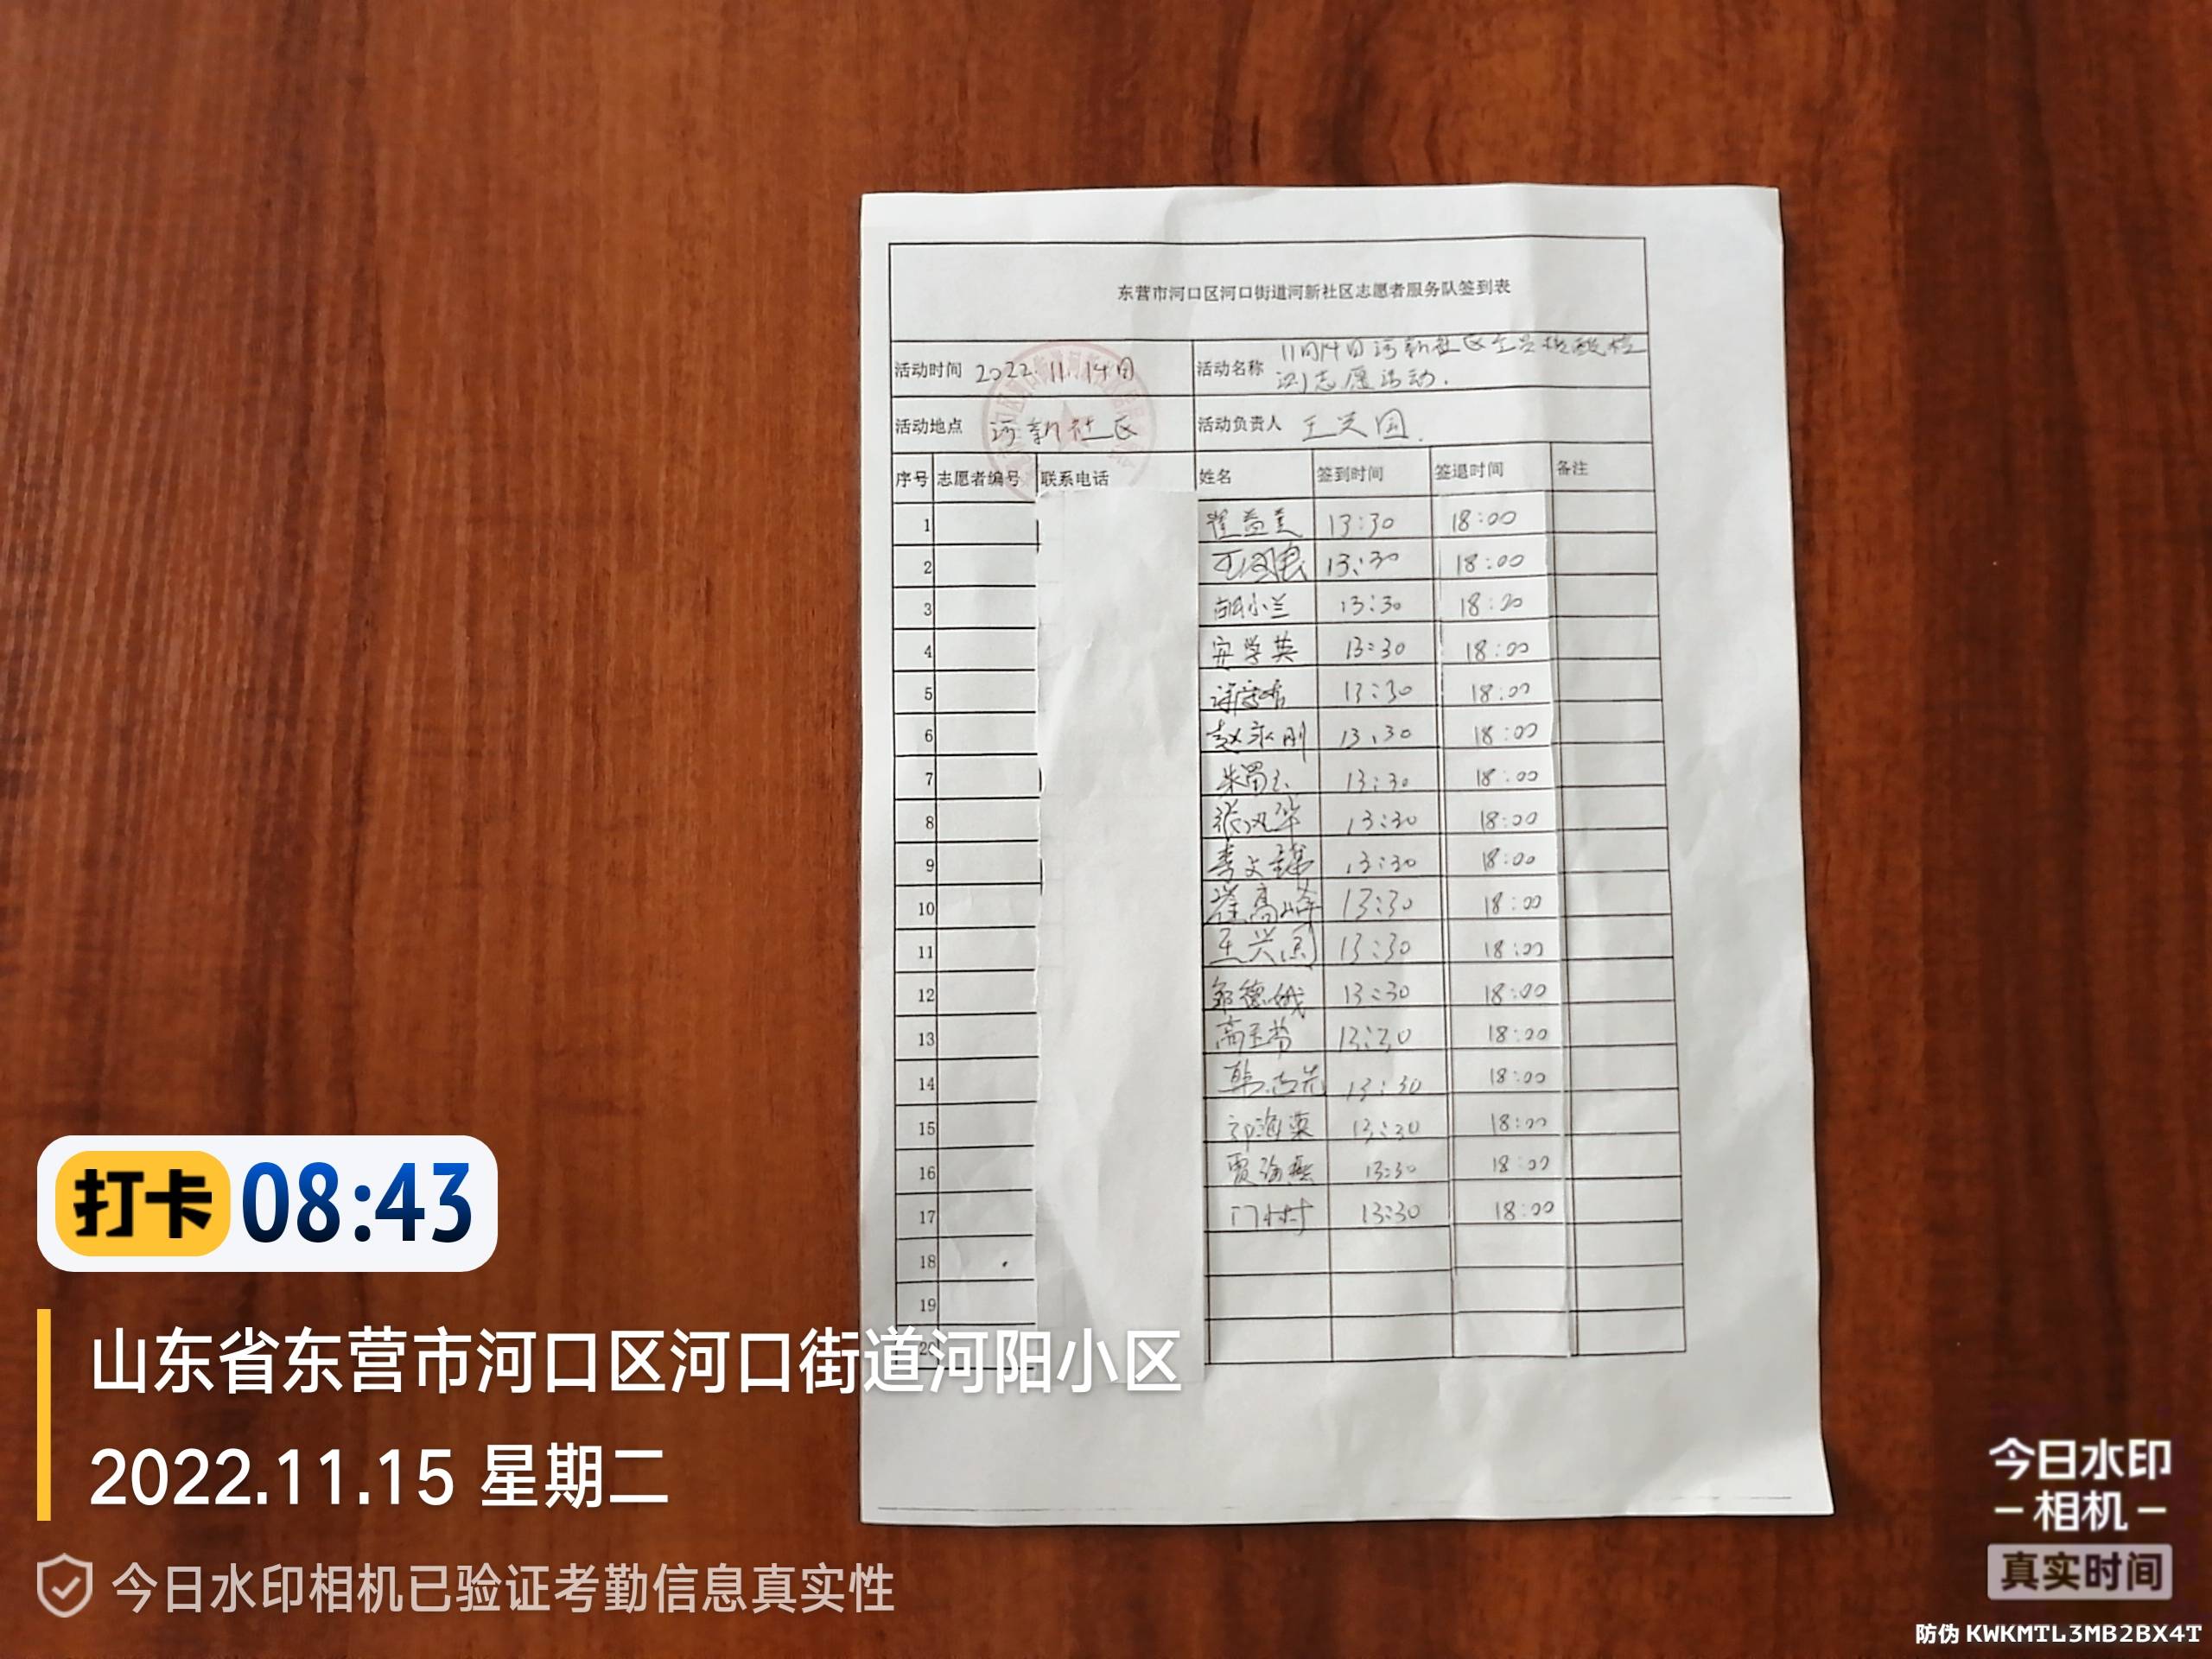 东营市河口区河口街道河新社区志愿者服务队签到表
活动时间 2022.11.14日 活动名称 11月14日河新社区全员核酸检
测志愿活动.
活动地点 河新社区 活动负责人 王兴国.
序号 志愿者编号 联系电话 姓名 签到时间 签退时间 备注
1 13:30 18:00
2 13:30 18:00
3 胡小兰 13:30 18:20
4 安学英 13:30 18:00
5 13:30 18:00
6 赵永刚 13:30 18:00
7 13:30 18:00
8 张凤华 13:30 18:00
9 李文 13:30 18:00
10 崔高峰 13:30 18:00
11 王兴国 13:30 18:00
12 13:30 18:00
13 13:30 18:00
14 韩 13:30 18:00
15 13:30 18:00
16 贾海燕 13:30 18:00
17 门树 13:30 18:00
18
19
20
打卡 08:43
山东省东营市河口区河口街道河阳小区
2022.11.15 星期二
今日水印相机已验证考勤信息真实性
今日水印
相机
真实时间
防伪 KWKMTL3MB2BX4T